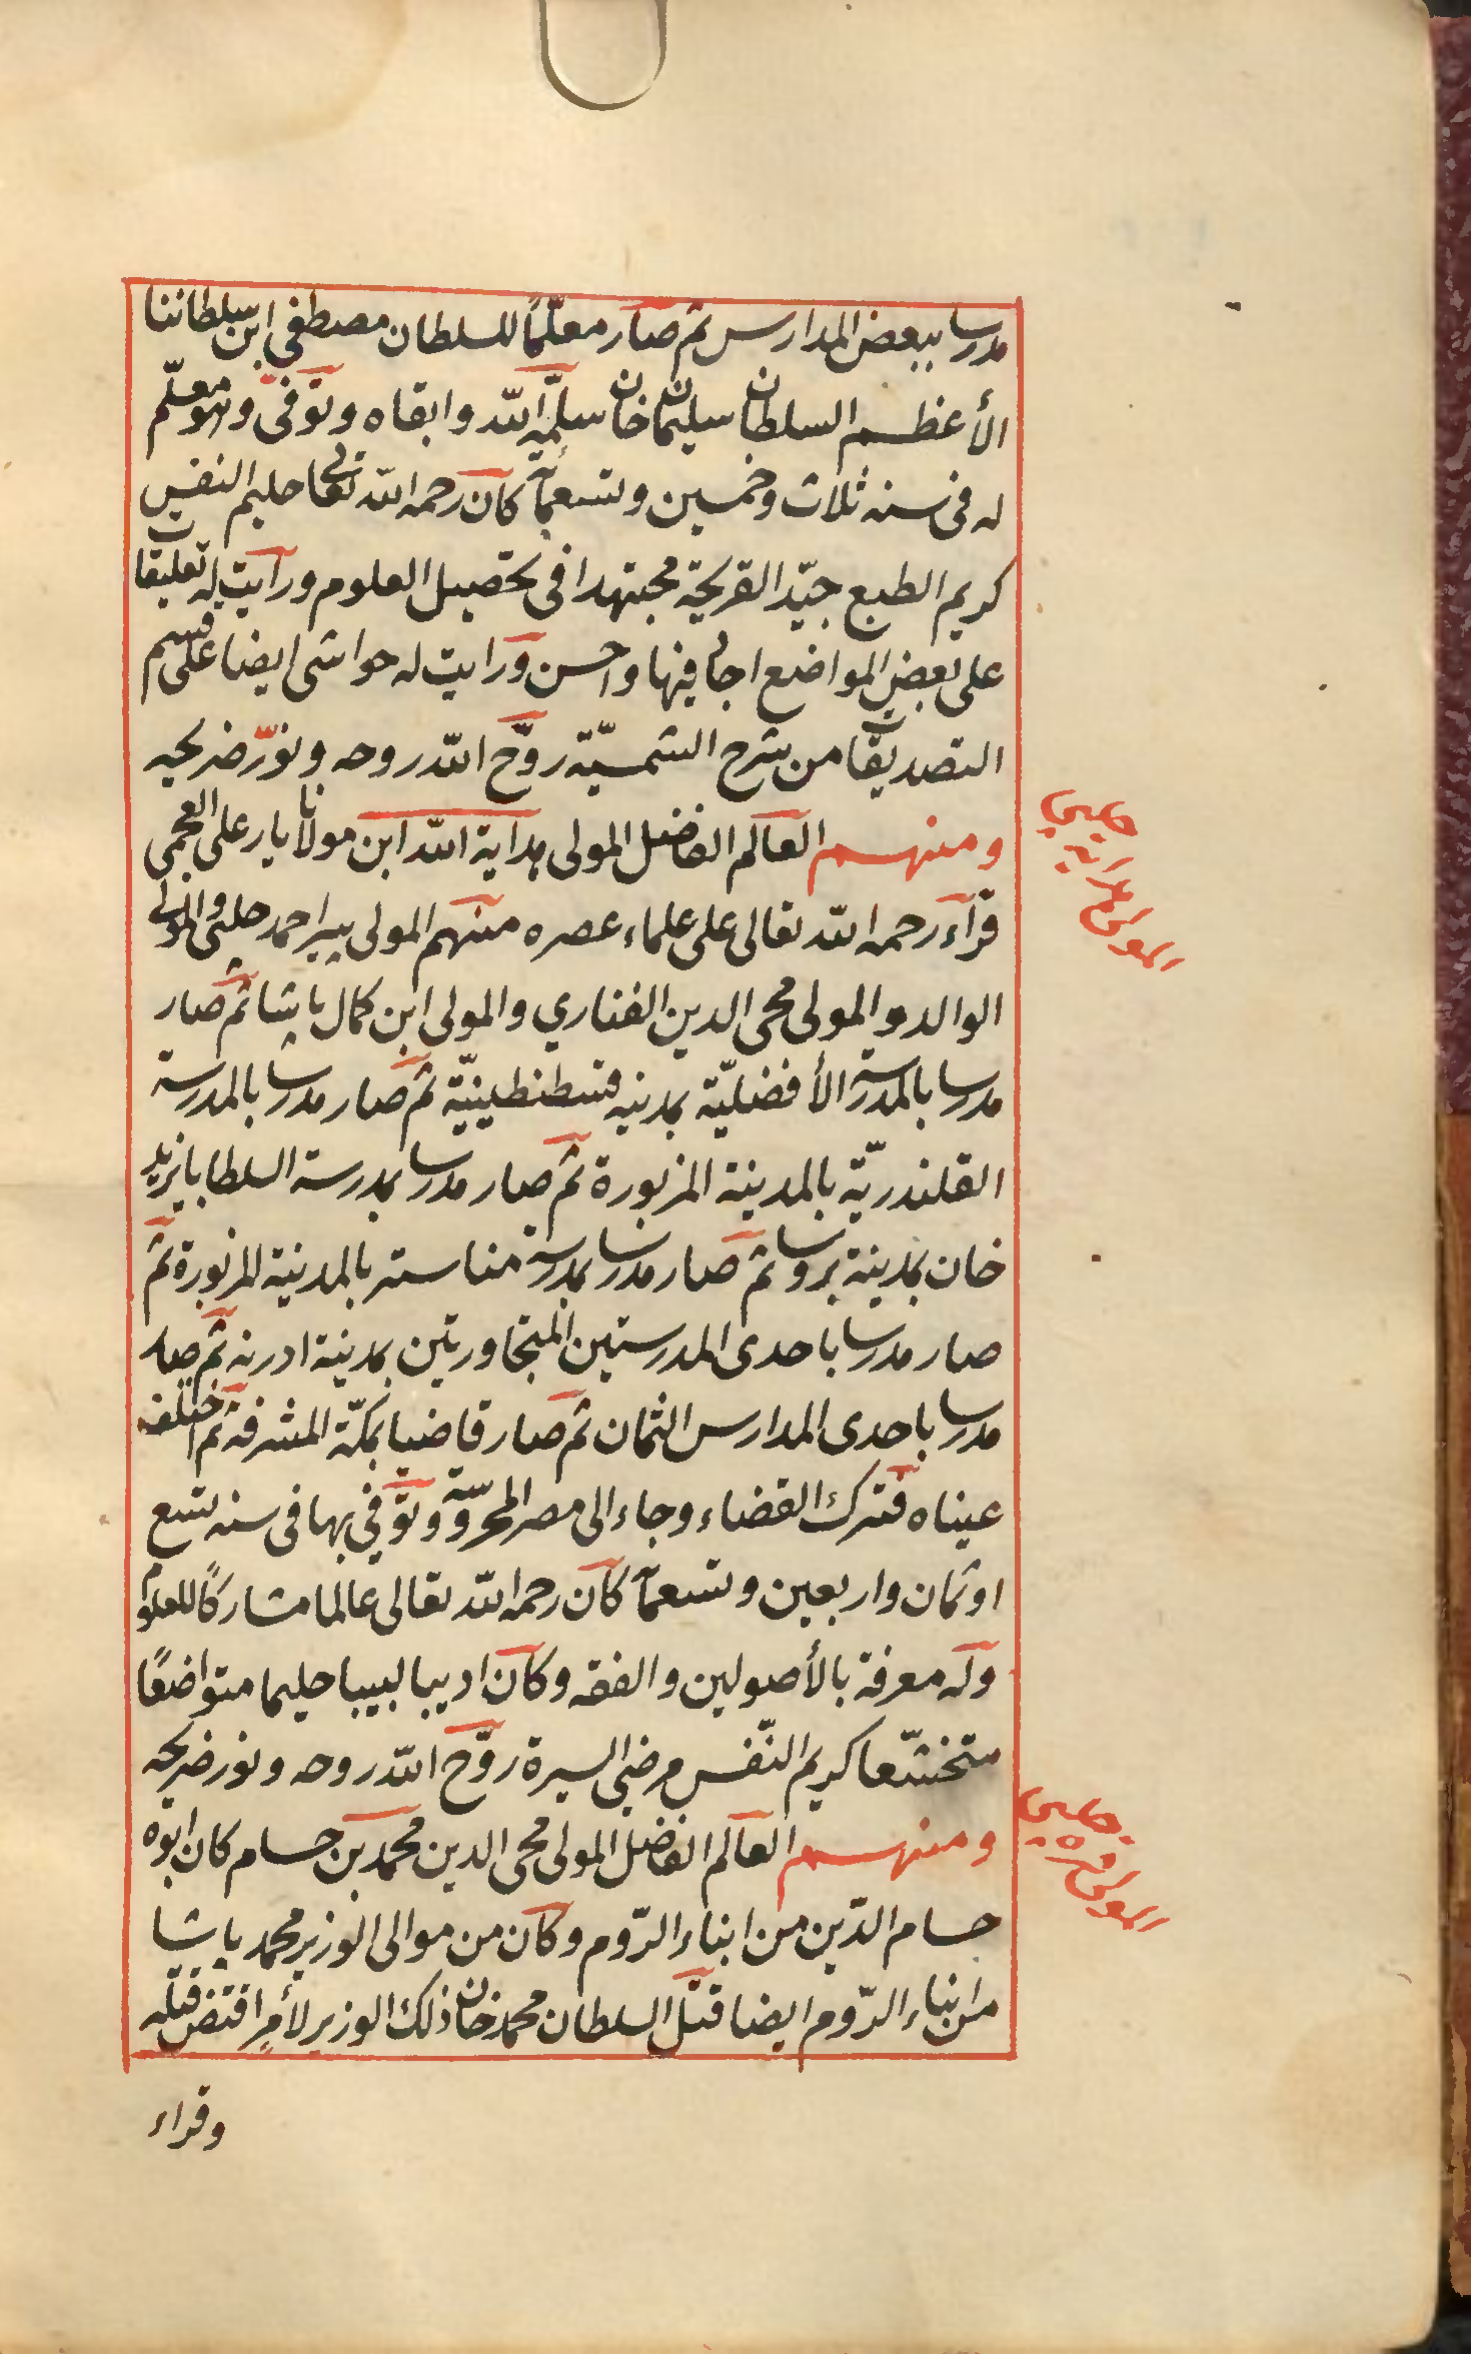 مدرسا ببعض المدارس ثم صار معلّمًا للسلطان مصطفى ابن سلطاننا
الأعظم السلطان سليمان خان سلّمه الله وابقاه وتوفّى وهو معلّم
له فى سنه ثلاث وخمسين وتسعمآئة كان رحمه الله تعالى حليم النفس
كريم الطبع جيّد القريحة مجتهدا فى تحصيل العلوم ورأيت له تعليقات
على بعض المواضع اجاد فيها واحسن ورايت له حواشى ايضا على قسم
التصديقات من شرح الشمسيّة روّح الله روحه ونوّر ضريحه
ومنهم العالم الفاضل المولى هداية الله ابن مولانا يار على العجمى
المولى هدايه چلبى
قرآء رحمه الله تعالى على علماء عصره منهم المولى پير احمد چلبى والمولى
الوالد والمولى محى الدين الفناري والمولى ابن كمال پاشا ثم صار
مدرسا بالمدرسة الأفضليّة بمدينه قسطنطينيّة ثم صار مدرسا بالمدرسة
القلندريّة بالمدينة المزبورة ثم صار مدرسا بمدرسة السلطان بايزيد
خان بمدينة بروسا ثم صار مدرسا بمدرسة مناستر بالمدينة المزبورة ثم
صار مدرسا باحدى المدرستين المتجاورتين بمدينة ادرنه ثم صار
مدرسا باحدى المدارس الثمان ثم صار قاضيا بمكّة المشرفة ثم اختلف
عيناه فترك القضاء وجاء الى مصر المحروسة وتوّفي بها فى سنه تسع
او ثمان واربعين وتسعمآئة كان رحمه الله تعالى عالما مشاركًا للعلوم
وله معرفة بالأصولين والفقه وكان اديبا لبيبا حليما متواضعًا
متخشّعا كريم النّفس مرضى السيرة روّح الله روحه ونور ضريحه
ومنهم العالم الفاضل المولى محى الدين محمد بن حسام كان ابوه
المولى قره چلبى
حسام الدّين من ابناء الرّوم وكان من موالى الوزير محمد پاشا
من ابناء الرّوم ايضا قتل السلطان محمد خان ذلك الوزير لأمرٍ اقتضى قتله
وقراء